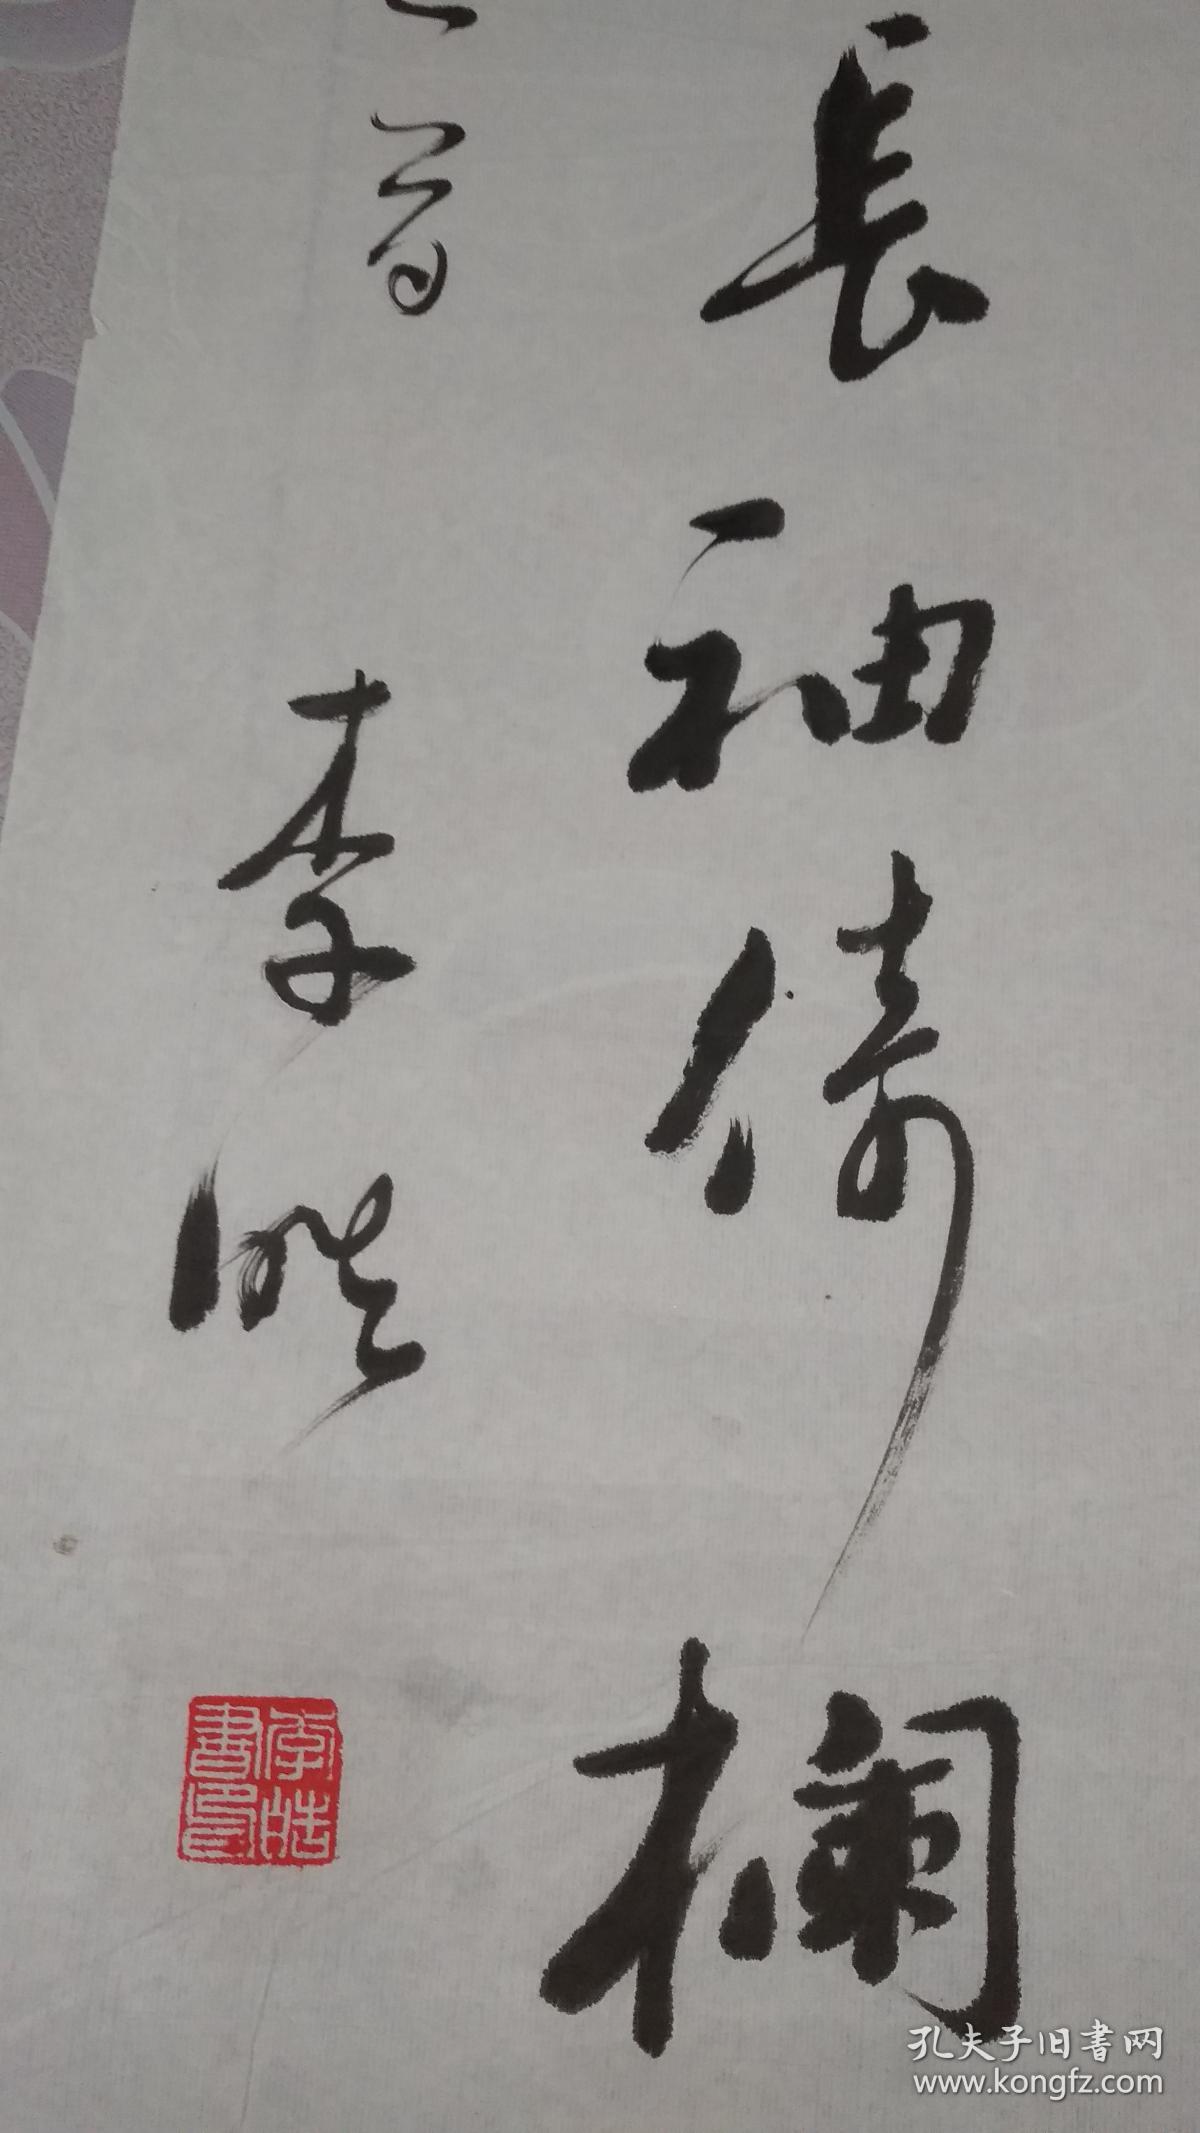 長袖倚欄
首
李皓
李皓書印
孔夫子旧書网
www.kongfz.com